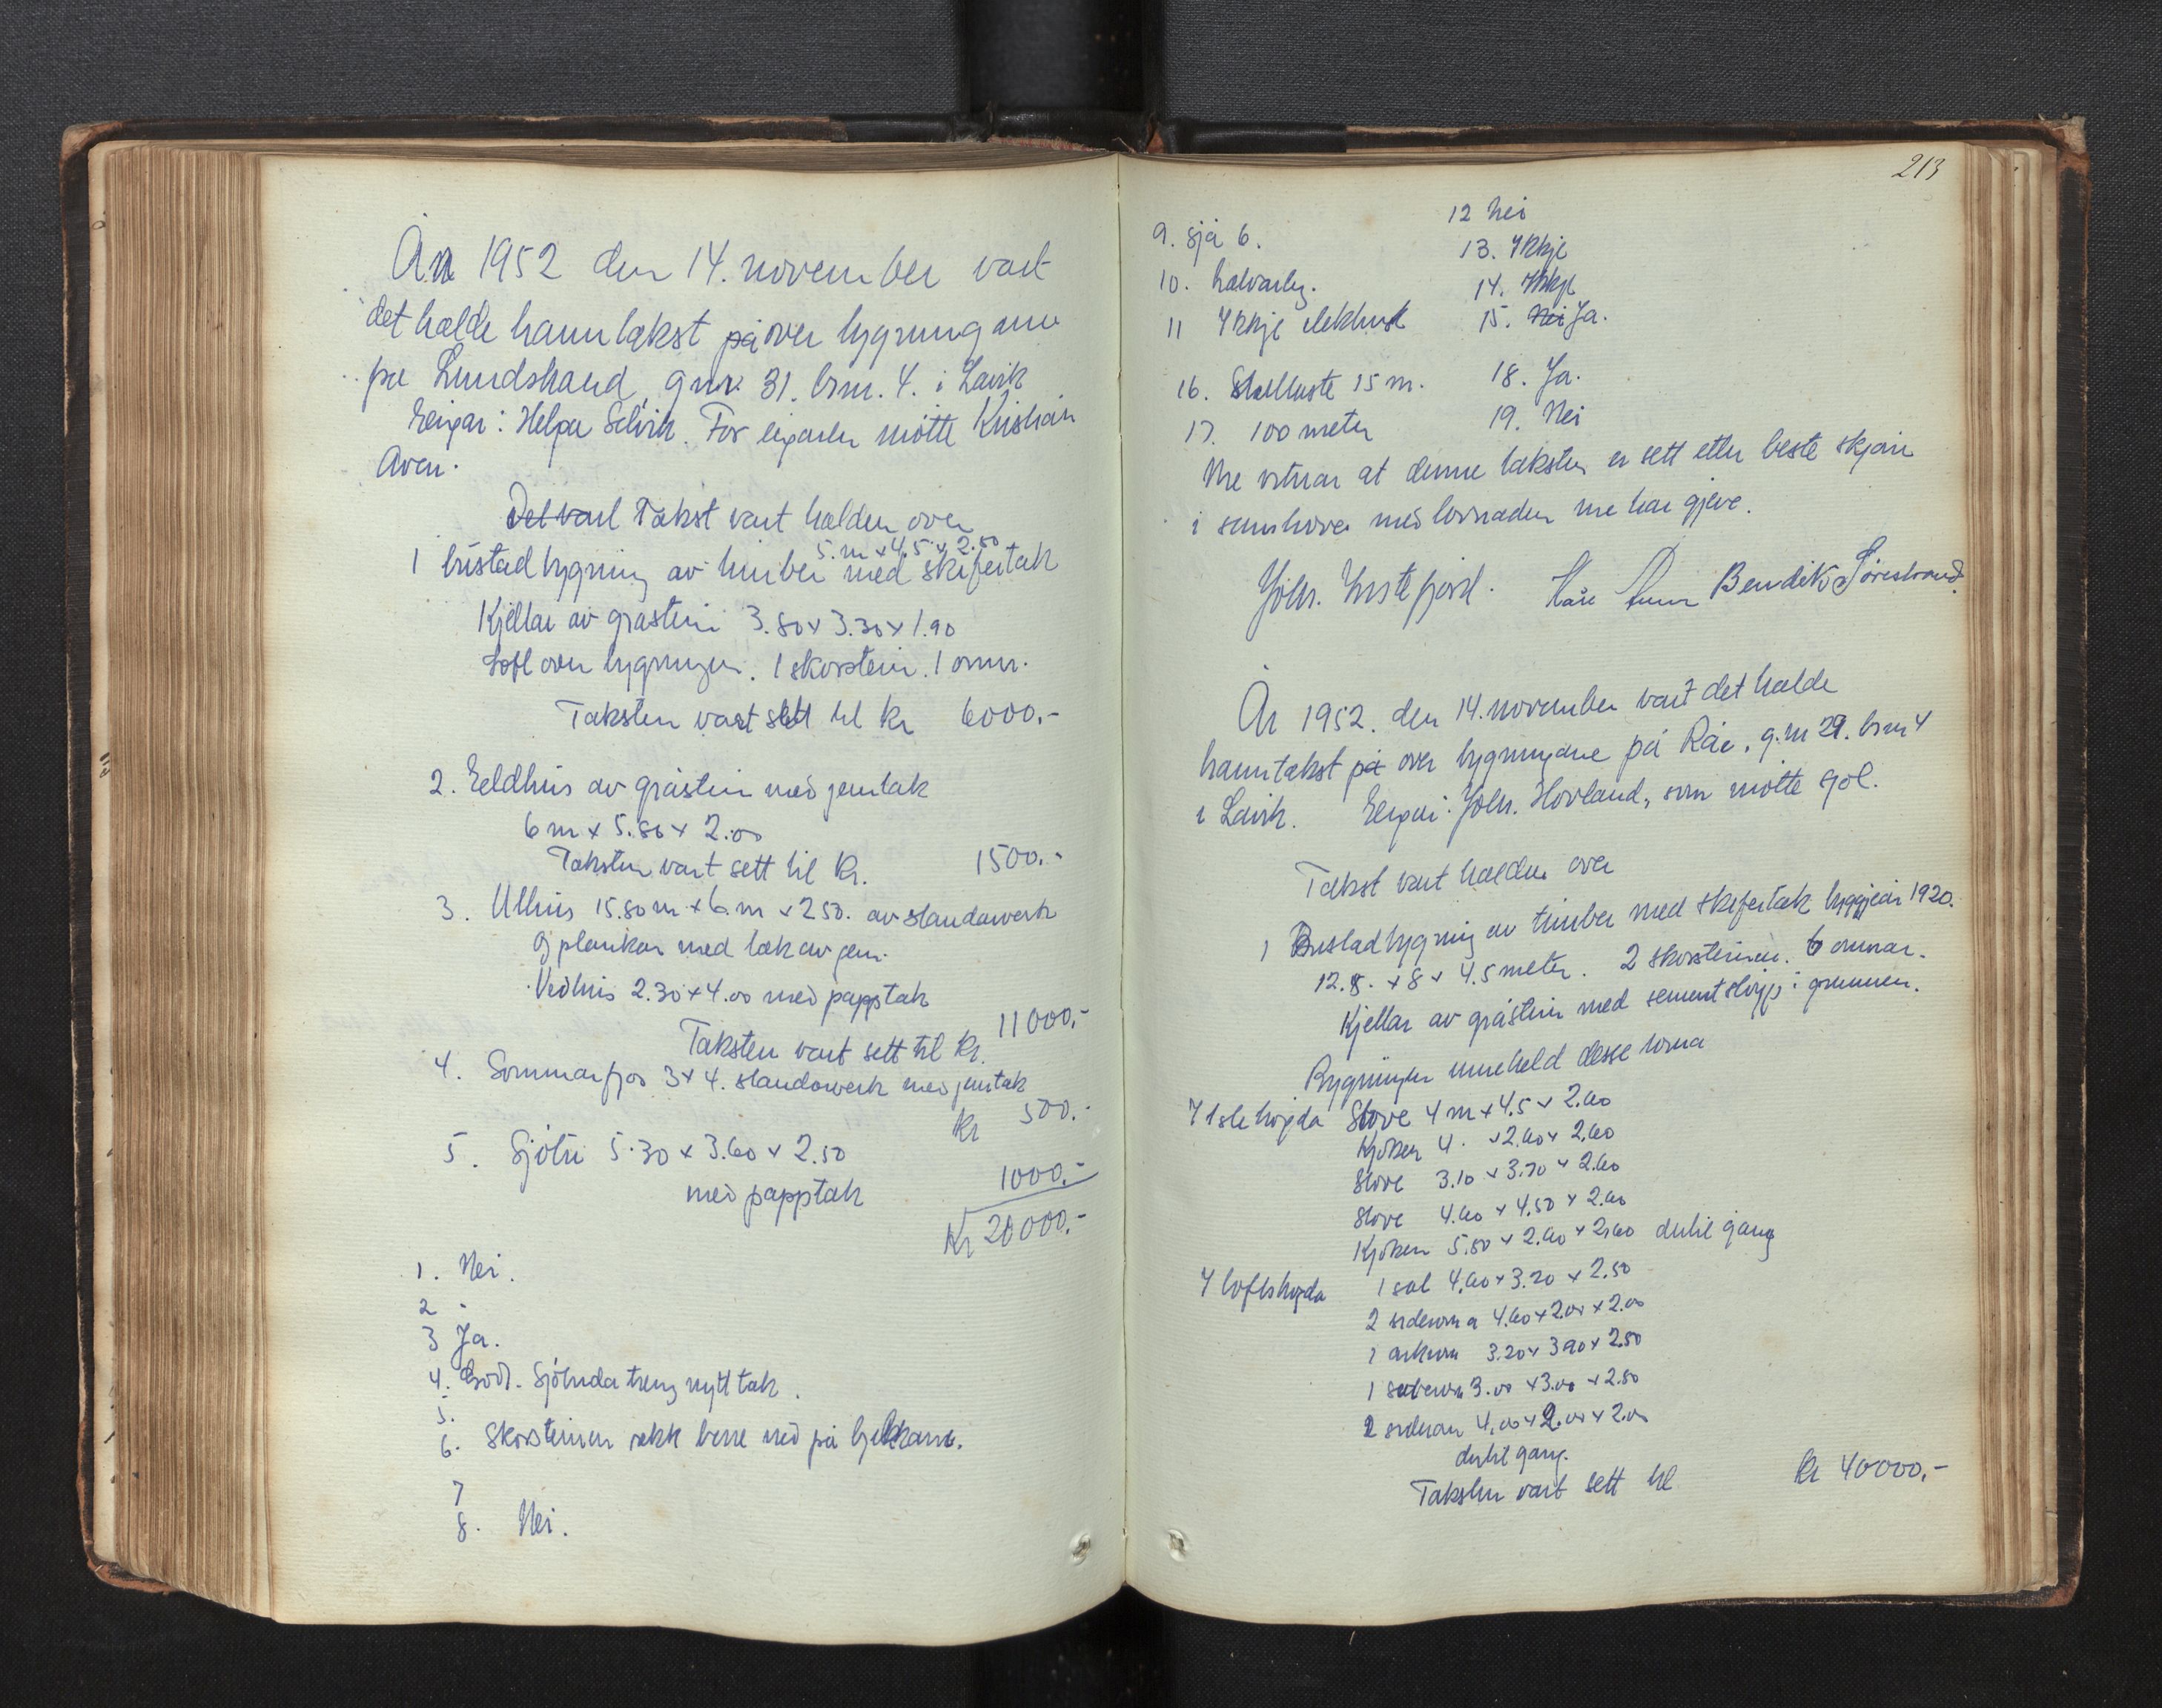 År 1952 den 14. november vart
det halde branntakst på over bygningane
på Lundstrand, gnr. 31. brn. 4. i Lavik
Eigar: Helga Selvik. For eigaren møtte Kristian
Aven.
Det vart Takst vart halden over
5. m x 4.5 x 2.50
1 bustad bygning av timber med skifertak
Kjellar av gråstein 3.80 x 3.30 x 1.90
Loft over bygningen. 1 skorstein. 1 omn.
Taksten vart sett til kr 6000.-
2. Eeldhus av gråstein med jerntak
6 m x 5.80 x 2.00
Taksten vart sett til kr. 1500.-
3. Uthus 15.80 m x 6. m x 2 50. av standarverk
og plankar med tak av jern.
Vedhus 2.30 x 4.00 med papptak
Taksten vart sett til kr. 11000.-
4. Sommarfjøs 3 x 4. standarverk med jerntak
kr 500.-
5. Sjøbu 5.30 x 3.60 x 2.50
med papptak 1000.-
Kr 20000.-
1. Nei.
2 -
3 Ja.
4. God. Sjøbuda treng nytt tak.
5.
6. Skorsteinen rekk berre ned på bjelkane.
7
8. Nei.
213
9. sjå 6.
10. halvarleg.
11 Ikkje elektrisk
12 Nei
13. Ikkje
14. Ikkje
15. Nei Ja.
16. Stallhuste 15 m.
17. 100 meter
18. Ja.
19. Nei
Me vitnar at denne taksten er sett etter beste skjøn
i samhøve med lovnaden me har gjeve.
Johs. Ystefjord. Kåre Bendik Sørestrand.
År 1952. den 14. november vart det halde
branntakst på over bygningane på Råe, g.nr 29. brn 4
i Lavik. Eigar: Johs. Hovland, som møtte sjøl.
Takst vart halden over
1 Bustadbygning av timber med skifertak byggjeår 1920.
12.8. x 8 x 4.5 meter. 2 skorsteinen. 6 omnar.
Kjellar av gråstein med sementstøyp i grunnen.
Bygningen inneheld desse roma
I 1ste høgda Stove 4 m x 4.5 x 2.60
Kjøken 4. x 2.60 x 2.60
Stove 3.10 x 3.70 x 2.60
Stove 4.60 x 4.50 x 2.60
Kjøken 5.80 x 2.60 x 2.60 dertil gang
I loftshøgda 1 sal 4.60 x 3.20 x 2.50
2 siderom a 4.60 x 2.00 x 2.00
1 arkrom 3.20 x 3 90 x 2.50
1 soverom 3.00 x 3.00 x 2.50
2 siderom 4.00 x 2.00 x 2.00
dertil gang.
Taksten vart sett til kr 40000.-